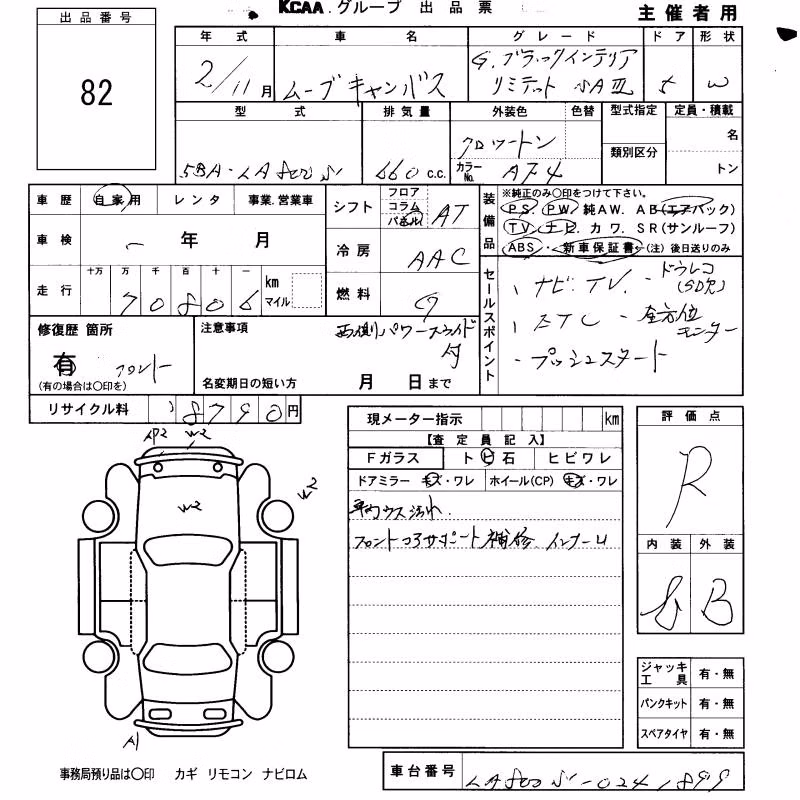 KCAA.グループ 出品票
主催者用
出品番号
82
年式 車名 グレード ドア 形状
2/11月 ムーブキャンバス G.ブラックインテリア リミテッド SAⅢ 5 W
型式 排気量 外装色 色替 型式指定 定員・積載
5BA-LA800S 660 c.c. カラーNo. 類別区分 名 トン
車歴 自家用 レンタ 事業.営業車
車検 ー 年 月
走行 十万 万 千 百 十 一
70806 km マイル
シフト フロア コラム パネル AT
冷房 AAC
燃料 G
装備品 ※純正のみ〇印をつけて下さい。
PS. PW. 純AW. AB(エアバック)
TV. ナビ. カワ. SR(サンルーフ)
ABS. 新車保証書←(注)後日送りのみ
セールスポイント
、ナビ.TV. -ドラレコ(SD欠)
、ETC -全方位モニター
、プッシュスタート
修復歴 箇所
有 フロント
(有の場合は〇印を)
注意事項
両側パワースライド付
名変期日の短い方 月 日まで
リサイクル料 8790円
現メーター指示 km
【査定員記入】
Fガラス トビ石 ヒビワレ
ドアミラー キズ・ワレ ホイール(CP) キズ・ワレ
車内ウス汚れ.
フロントコアサポート補修
評価点
R
内装 外装
B
AP2 W2
W2 W2
A1
ジャッキ工具 有・無
パンクキット 有・無
スペアタイヤ 有・無
事務局預り品は〇印 カギ リモコン ナビロム
車台番号 LA800S-0241899